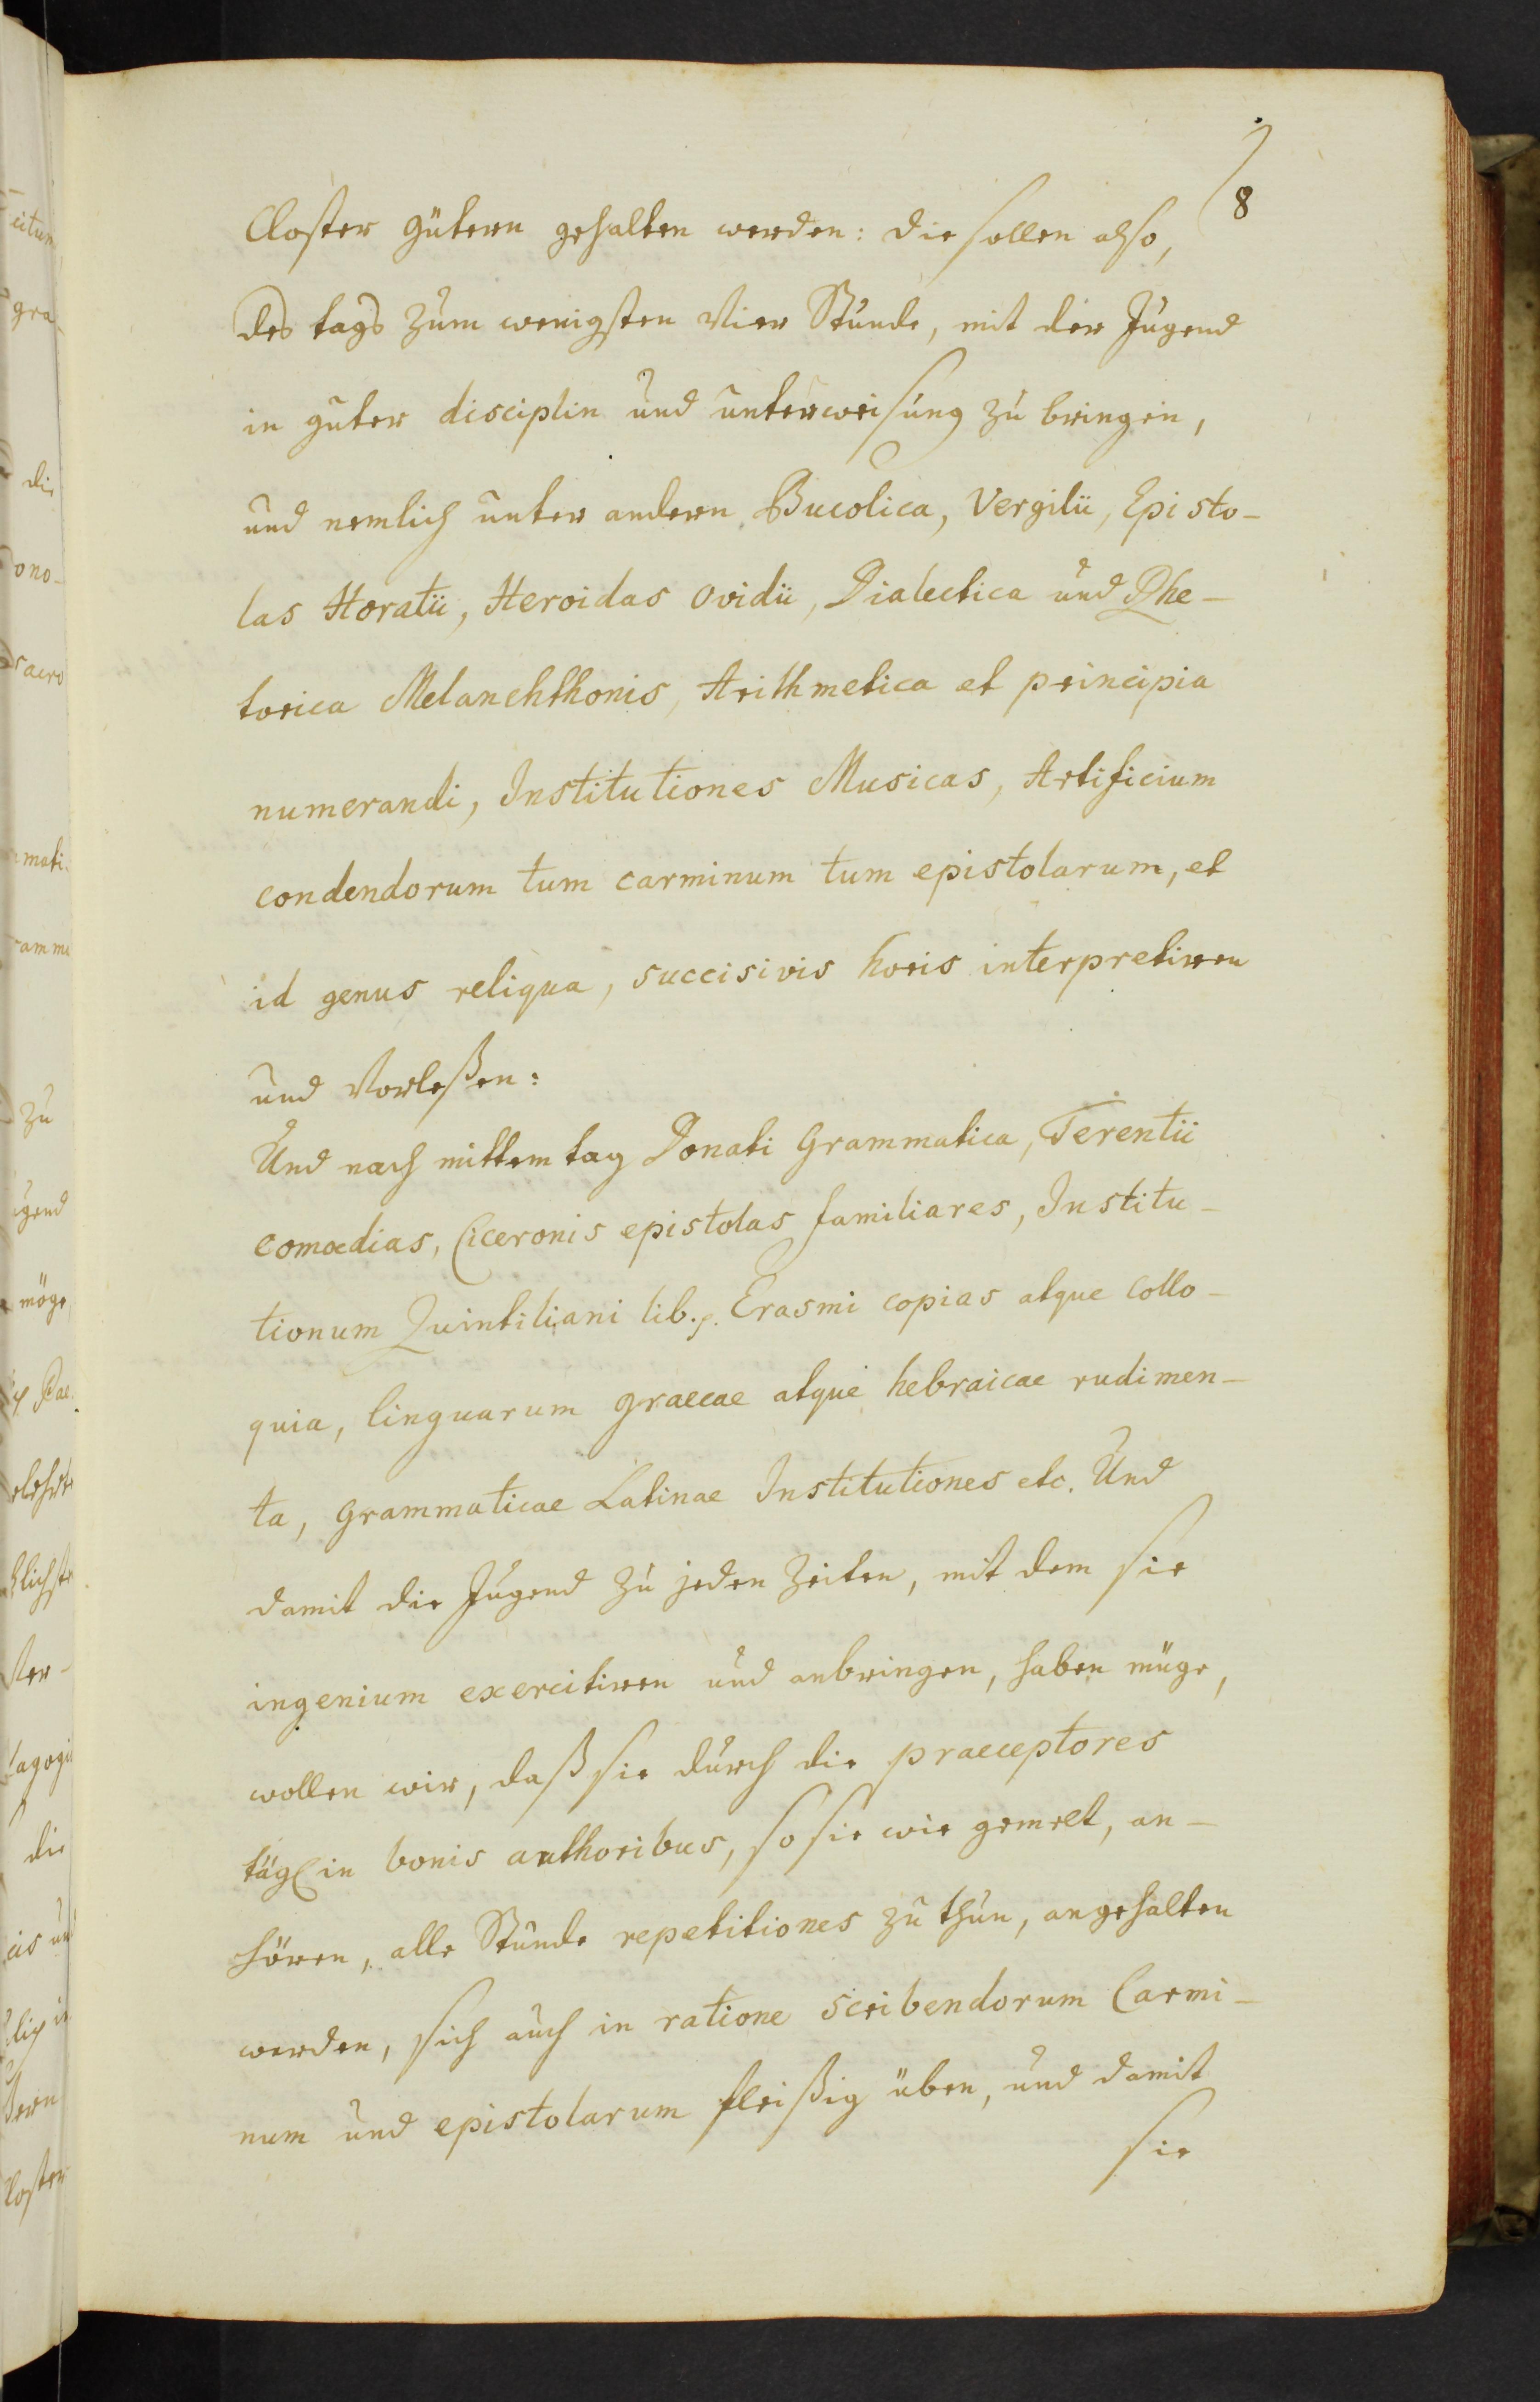 8
Closter gütern gehalten werden: die sollen also,
des tags zum wenigsten Vier Stunde, mit der Jugend
in guter disciplin und unterweisung zu bringen,
und nemlich unter andern Bucolica, Vergilii, Episto-
las Horatii, Heroidas Ovidii, Dialectica und Rhe-
torica Melanchthonis, Arithmetica et principia
numerandi, Institutiones Musicas, Artificium
condendorum tum carminum tum epistolarum, et
id genus reliqua, succisivis horis interpretiren
und Vorleßen:
Und nach mittemtag Donati Grammatica, Terentii
comoedias, Ciceronis epistolas familiares, Institu-
tionum Quintiliani lib. Erasmi copias atque Collo-
quia, linguarum graecae atque hebraicae rudimen-
ta, Grammaticae Latinae Institutiones etc. Und
damit die Jugend zu jeden Zeiten, mit dem sie
ingenium exercitiren und anbringen, haben müge,
wollen wir, daß sie durch die praeceptores
tägl in bonis authoribus, so sie wie gemelt, an-
hören, alle Stunde repetitiones zu thun, angehalten
werden, sich auch in ratione scribendorum Carmi-
num und epistolarum fleißig üben, und damit
sie